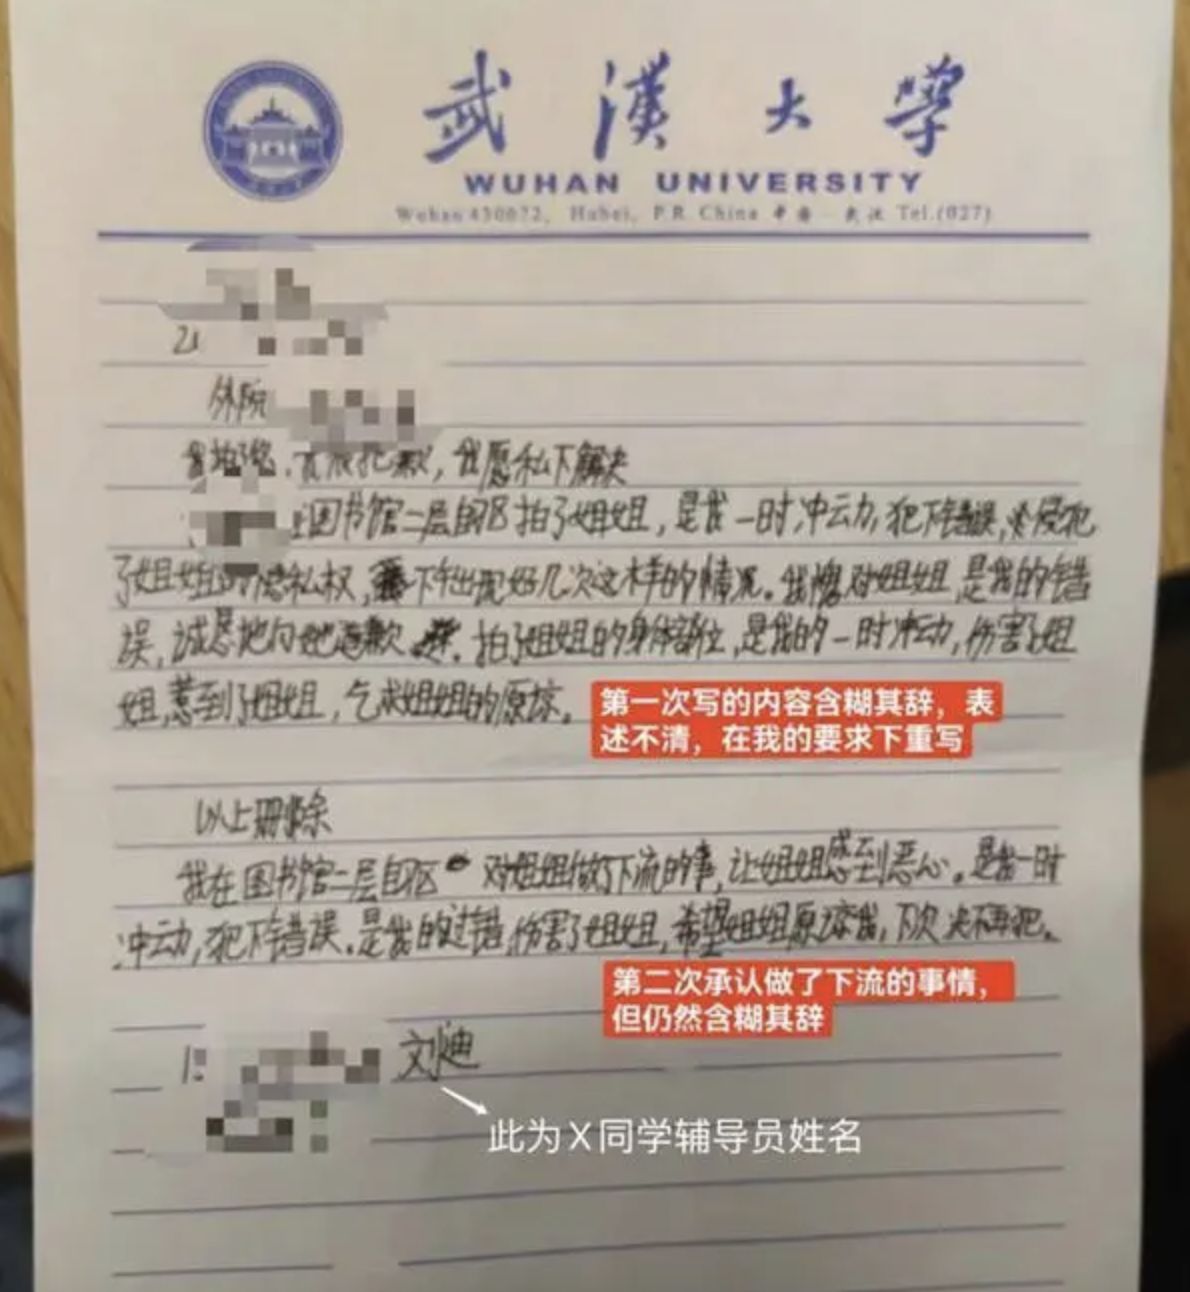 武漢大學
WUHAN UNIVERSITY
Wuhan 430072, Hubei, P.R. China 中国 武汉 Tel.(027)
21
外院
道歉，我愿私下解决
图书馆二层自习区拍了姐姐，是我一时冲动，犯下错误，侵犯
了姐姐的隐私权，下午出现好几次这样的情况。我愧对姐姐，是我的错
误，诚恳地向她道歉。拍了姐姐的身体部位，是我的一时冲动，伤害了姐
姐，惹到了姐姐，乞求姐姐的原谅。
第一次写的内容含糊其辞，表
述不清，在我的要求下重写
以上删除
我在图书馆二层自习区 对姐姐做了下流的事，让姐姐感到恶心。是我一时
冲动，犯下错误。是我的过错伤害了姐姐，希望姐姐原谅我，下次决不再犯。
第二次承认做了下流的事情，
但仍然含糊其辞
刘迪
此为X同学辅导员姓名